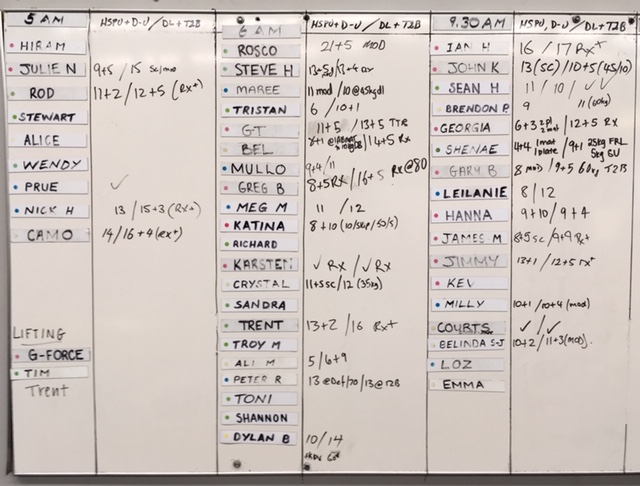 5 AM HSPU+D-U / DL+T2B
HIRAM
JULIE N 9+5 / 15 sc/mod
ROD 11+2 / 12+5 (Rx+)
STEWART
ALICE
WENDY
PRUE ✓
NICK H 13 / 15+3 (Rx+)
CAMO 14/16+4 (Rx+)
LIFTING
G-FORCE
TIM
Trent
6 AM HSPU+D-U / DL+T2B
ROSCO 21+5 MOD
STEVE H
MAREE 11 mod / 10@65kgdl
TRISTAN 6 / 10+1
GT 11+5 / 13+5 TTR
BEL / 14+5 Rx
MULLO 9+4/11
GREG B 8+5RX / 16+5 Rx@80
MEG M 11 / 12
KATINA 8+10 (10/skip/50/5)
RICHARD
KARSTEN ✓ Rx / ✓ Rx
CRYSTAL 11+5sc/12 (35kg)
SANDRA
TRENT 13+2 / 16 Rx+
TROY M
ALI M 5/6+9
PETER R 13 @Def/70 / 13@T2B
TONI
SHANNON
DYLAN B 10/14
9.30 AM HSPU, D-U / DL+T2B
IAN H 16 / 17 Rx+
JOHN K 13(SC) / 10+5 (45/10)
SEAN H 11 / 10 / ✓ ✓
BRENDON P 9 11 (60kg)
GEORGIA 6+3 2pl 2mat / 12+5 Rx
SHENAE 4+4 1mat 1plate / 9+1 25kg FRL 5kg SU
GARY B 8 mod / 9+5 60kg T2B
LEILANIE 8/12
HANNA 9+10 / 9+4
JAMES M 8+5sc /9+9 Rx+
JIMMY 13+1 / 12+5 rx+
KEV
MILLY 10+1 / 10+4 (mod)
COURTS ✓ / ✓
BELINDA S-J 10+2 / 11+3 (mod).
LOZ
EMMA